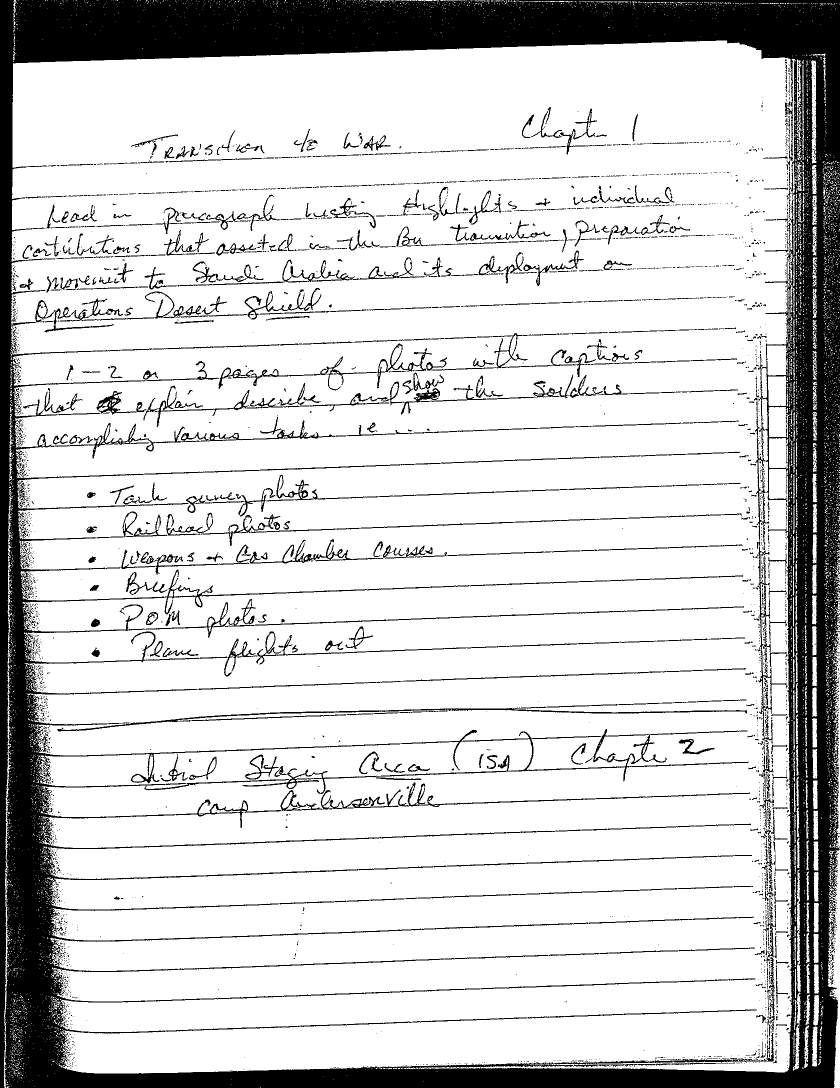 Chapter 1
Transition to War.
Lead in paragraph listing Highlights + individual
contributions that asseted in the Bn transition, preparation
+ movement to Saudi Arabia and its deployment on
Operations Desert Shield.
1 - 2 or 3 pages of photos with captions
that explain, describe, and show the Soldiers
accomplishing various tasks. ie ...
• Tank gunnery photos
• Railhead photos
• Weapons + Gas Chamber Courses.
• Briefings
• P.O.M photos.
• Plane flights out
Initial Staging Area (ISA) Chapte 2
Camp Andersonville